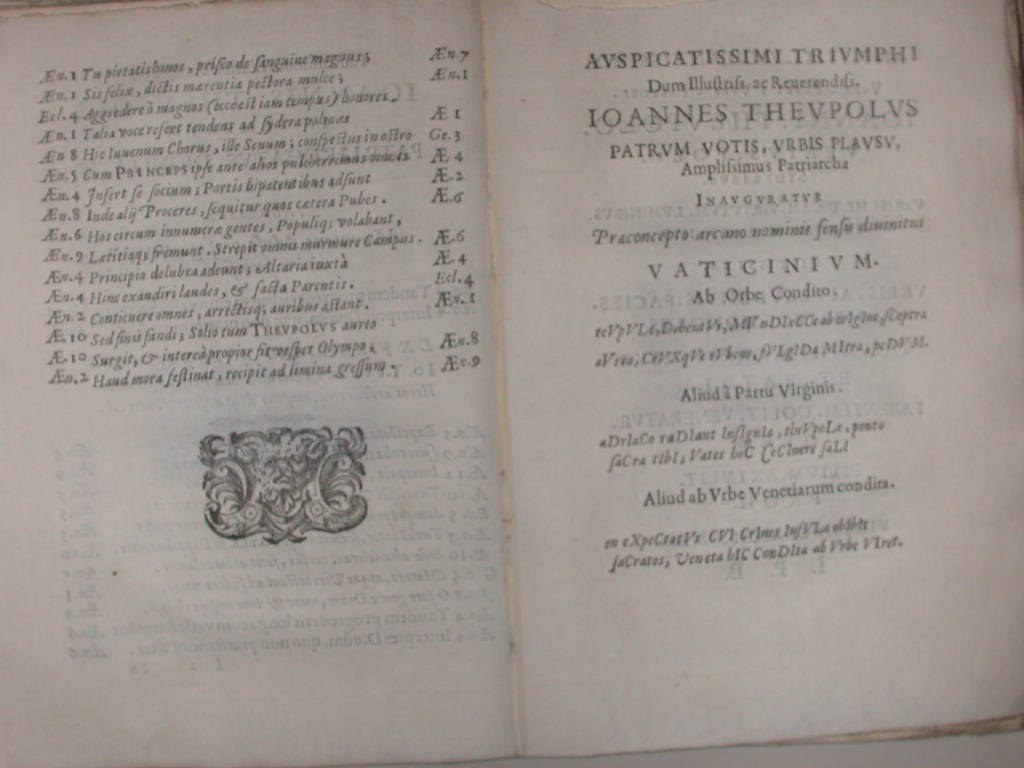 Æn. 1 Tu pietatis honos, prisco de sanguine magnus; Æn. 7
Æn. 1 Sis felix, dictis mœrentia pectora mulce; Æn. 1
Ecl. 4 Aggredere ò magnos (ecce est iam tempus) honores.
Æn. 1 Talia voce refert tendens ad sydera palmas Æ 1
Æn 8 Hic Iuuenum Chorus, ille Senum; conspectus in ostro Ge. 3
Æn. 5 Cum PRINCEPS ipse ante alios pulcherrimus omnes Æ 4
Æn. 4 Infert se socium; Portis bipatentibus adsunt Æ. 2
Æn. 8 Inde alij Proceres, sequitur quos cætera Pubes. Æ. 6
Æn. 6 Hos circum innumeræ gentes, Populiq; volabant,
Æn. 9 Lætitiaq; fremunt. Strepit omnis murmure Campus. Æ. 6
Æn. 4 Principio delubra adeunt; Altaria iuxtà Æ. 4
Æn. 4 Hinc exaudiri laudes, & facta Parentis. Ecl. 4
Æn. 2 Conticuere omnes, arrectisq; auribus astant. Æn. 1
Æ. 10 Sed finis fandi; Solio tum THEVPOLVS aureo
Æ. 10 Surgit, & intereà propior fit vesper Olympo, Æn. 8
Æn. 2 Haud mora festinat, recipit ad limina gressum. Æn. 9
AVSPICATISSIMI TRIVMPHI
Dum Illustriss. ac Reuerendiss.
IOANNES THEVPOLVS
PATRVM VOTIS, VRBIS PLAVSV,
Amplissimus Patriarcha
INAVGVRATVR
Præconcepto arcano nominis sensu diuinitus
VATICINIVM.
Ab Orbe Condito.
teVpVLe, DebentVr, MVnDI eCCe ab orIgIne sCeptra
aVrea, CVI fVLgIDa MItra, peDVM.
Aliud à Partu Virginis.
aDrIaCo raDIant InsIgnIa, theVpoLe, ponto
saCra tIbI; Vates hæC CeCInere saLI
Aliud ab Vrbe Venetiarum condita.
en eXpeCtatVs CVI CrInes InfVLa
saCratos, Veneta hIC ConDIta ab Vrbe VIret.